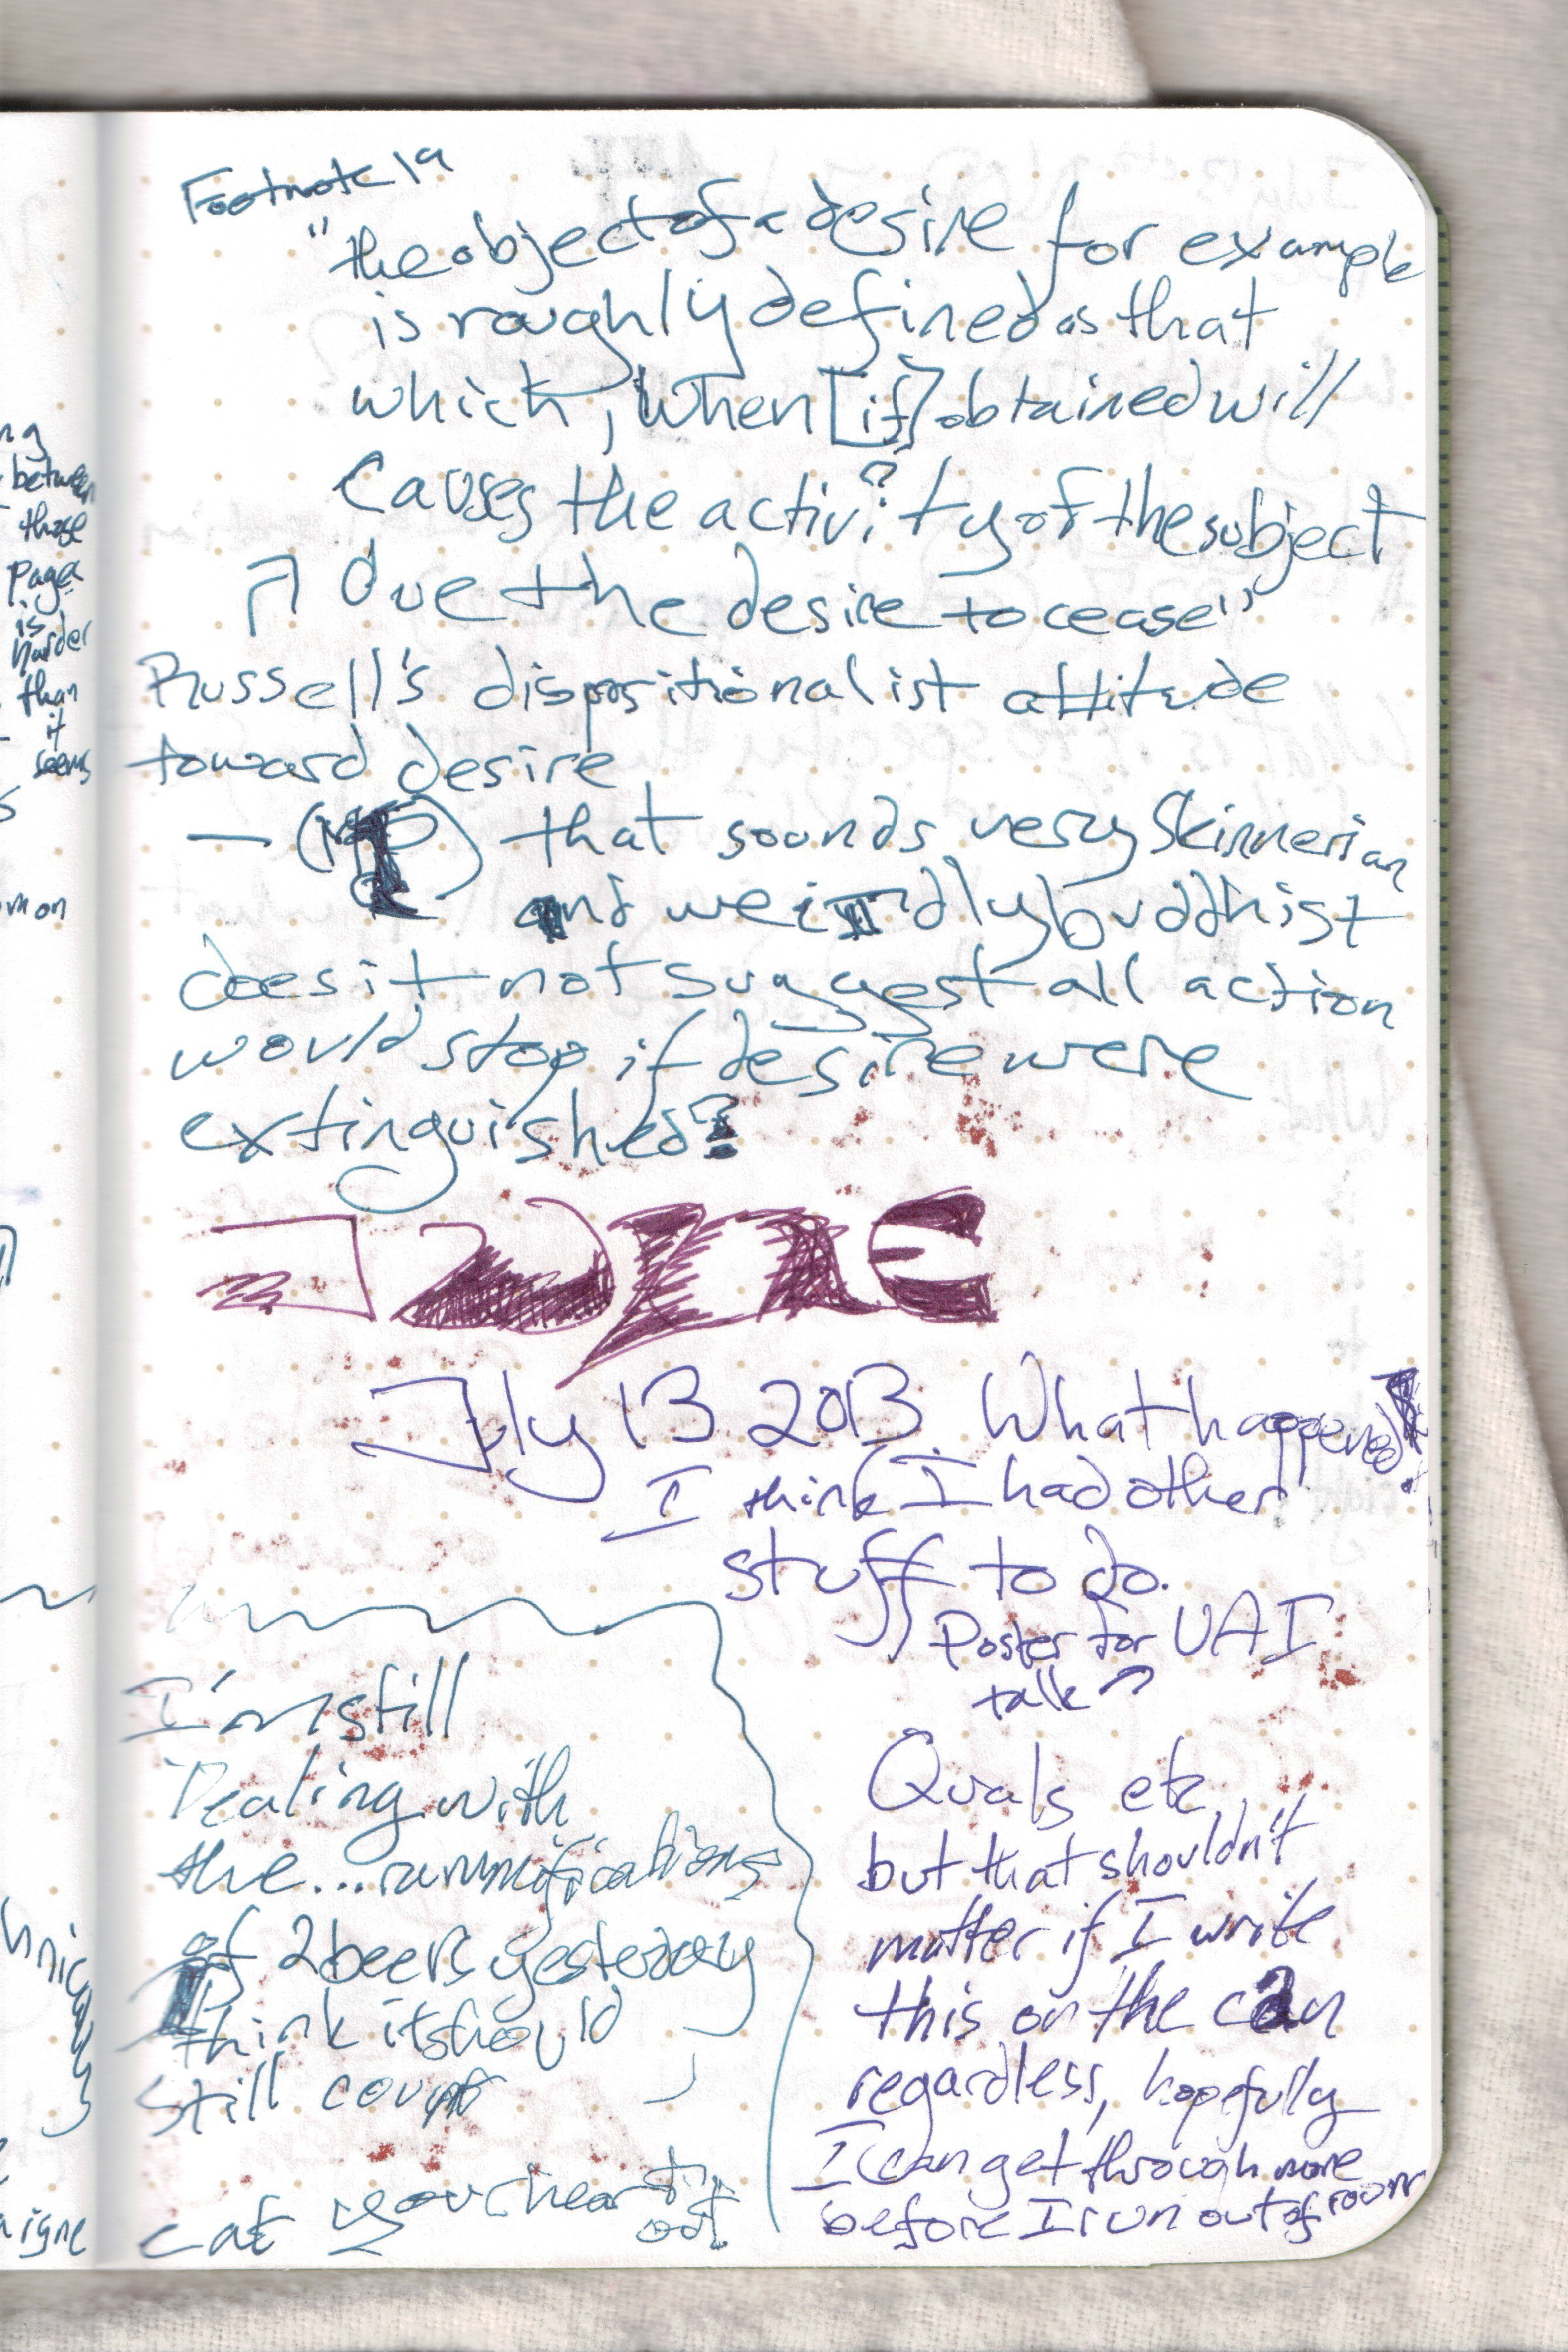 ng
between
those
page
is
harder
than
it
seems
mon
aigne
Footnote 19
"the object of a desire for example
is roughly defined as that
which, when [if] obtained will
causes the activity of the subject
?
due the desire to cease"
Russell's dispositionalist attitude
toward desire
— that sounds very Skinnerian
and weirdly buddhist
does it not suggest all action
would stop if desire were
extinguished?
June
July 13 2013. What happened?
I think I had other
stuff to do.
Poster for UAI
talk
I'm still
Dealing with
the... rummifications
of 2 beers yesterday
think it should
still count
eat your heart
out
Quals etc,
but that shouldn't
matter if I write
this on the can
regardless, hopefully
I can get through more
before I run out of room